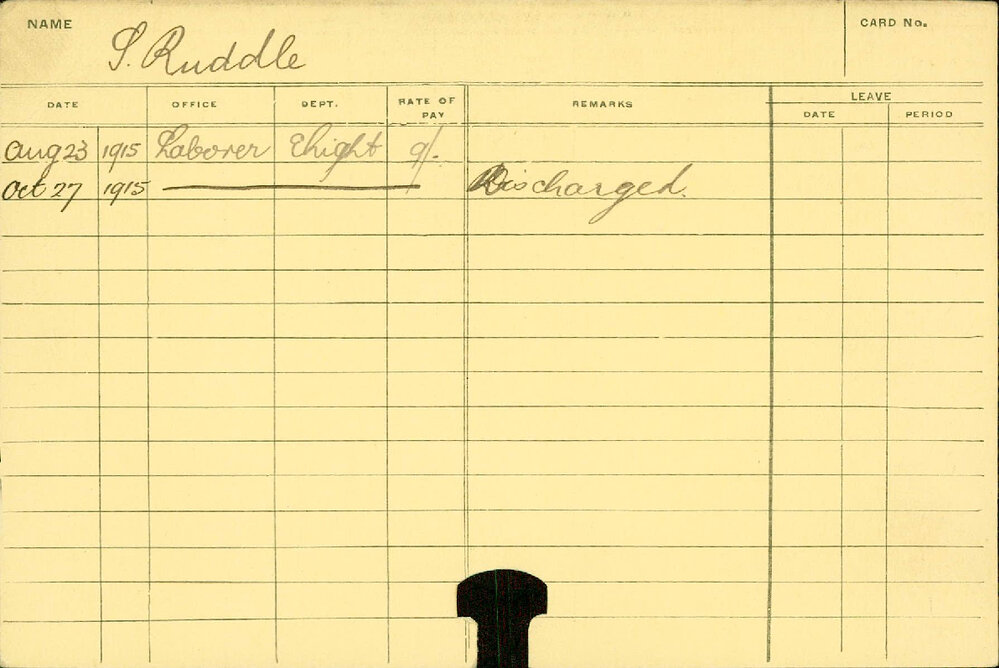 NAME S. Ruddle CARD No.
DATE OFFICE DEPT. RATE OF PAY REMARKS LEAVE
DATE PERIOD
Aug 23 1915 Laborer Elight 9/-
Oct 27 1915 Discharged.